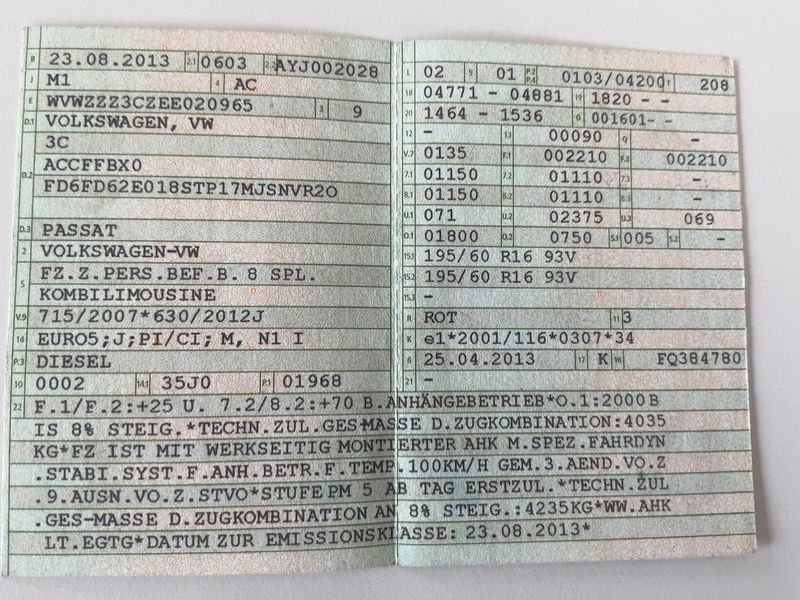 B 23.08.2013 2.1 0603 2.2 AYJ002028
J M1 4 AC
E WVWZZZ3CZEE020965 3 9
D.1 VOLKSWAGEN, VW
3C
D.2 ACCFFBX0
FD6FD62E018STP17MJSNVR2O
D.3 PASSAT
2 VOLKSWAGEN-VW
5 FZ.Z.PERS.BEF.B. 8 SPL.
KOMBILIMOUSINE
V.9 715/2007*630/2012J
14 EURO5;J;PI/CI; M, N1 I
P.3 DIESEL
10 0002 14.1 35J0 P.1 01968
L 02 9 01 P.2 P.4 0103/04200 T 208
18 04771 - 04881 19 1820 - -
20 1464 - 1536 G 001601- -
12 - 13 00090 Q -
V.7 0135 F.1 002210 F.2 002210
7.1 01150 7.2 01110 7.3 -
8.1 01150 8.2 01110 8.3 -
U.1 071 U.2 02375 U.3 069
O.1 01800 O.2 0750 S.1 005 S.2 -
15.1 195/60 R16 93V
15.2 195/60 R16 93V
15.3 -
R ROT 11 3
K e1*2001/116*0307*34
6 25.04.2013 17 K 16 FQ384780
21 -
22 F.1/F.2:+25 U. 7.2/8.2:+70 B.ANHÄNGEBETRIEB*O.1:2000 B
IS 8% STEIG.*TECHN.ZUL.GES-MASSE D.ZUGKOMBINATION:4035
KG*FZ IST MIT WERKSEITIG MONTIERTER AHK M.SPEZ.FAHRDYN
.STABI.SYST.F.ANH.BETR.F.TEMP.100KM/H GEM.3.AEND.VO.Z
.9.AUSN.VO.Z.STVO*STUFE PM 5 AB TAG ERSTZUL.*TECHN.ZUL
.GES-MASSE D.ZUGKOMBINATION AN 8% STEIG.:4235KG*WW.AHK
LT.EGTG*DATUM ZUR EMISSIONSKLASSE: 23.08.2013*